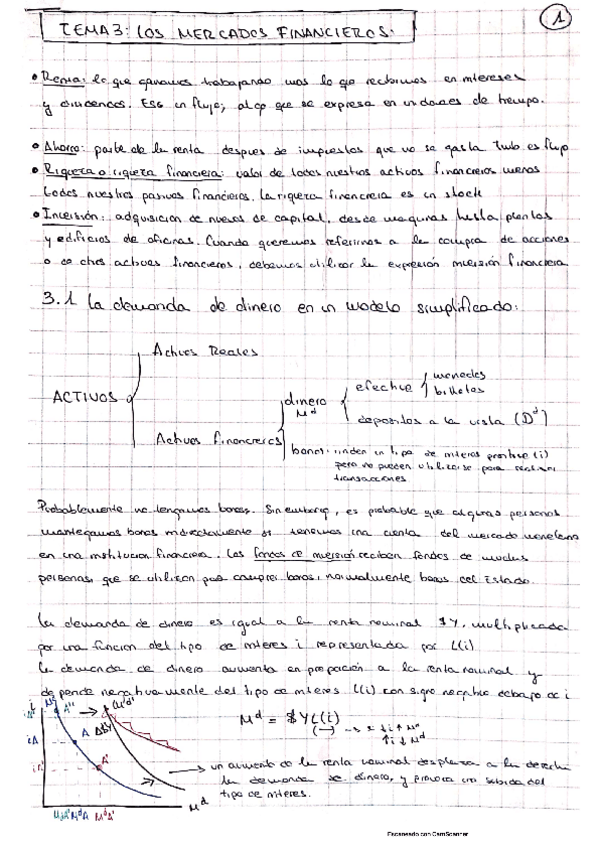 TEMA 3: LOS MERCADOS FINANCIEROS.
1
• Renta: lo que ganamos trabajando mas lo qe recibimos en intereses
y dividendos. Es un flujo, algo que se expresa en unidades de tiempo.
• Ahorro: parte de la renta despues de impuestos que no se gasta. Tmb es flujo
• Riqueza o riqueza financiera: valor de todos nuestros activos financieros menos
todos nuestros pasivos financieros. La riqueza financiera es un stock
• Inversión: adquisición de nuevos de capital, desde maquinas hasta plantas
y edificios de oficinas. Cuando queremos referirnos a la compra de acciones
o de otros activos financieros, debemos utilizar la expresión inversión financiera
3.1 La demanda de dinero en un modelo simplificado:
Activos Reales
ACTIVOS
Activos financieros
dinero
Mᵈ
efectivo
monedas
billetes
depositos a la vista (Dᵈ)
bonos: rinden un tipo de interes positivo (i)
pero no pueden utilizarse para realizar
transacciones
Probablemente no tengamos bonos. Sin embargo, es probable que algunas personas
mantengamos bonos indirectamente si tenemos una cuenta del mercado monetario
en una institucion financiera. Los fondos de inversión reciben fondos de muchas
personas, que se utilizan para comprar bonos, normalmente bonos del Estado.
La demanda de dinero es igual a la renta nominal $Y, multiplicada
por una funcion del tipo de interes i representada por L(i)
La demanda de dinero aumenta en proporción a la renta nominal y
depende negativamente del tipo de interes L(i) con signo negativo debajo de i
Mᵈ = $YL(i)
(-) → ↓i ↑Mᵈ
↑i ↓Mᵈ
i Mᵈ A'' (Mᵈ)'
Δ$Y
iA A
A'
Mᵈ
→ un aumento de la renta nominal desplaza a la derecha
la demanda de dinero, y provoca una subida del
tipo de interes.
Escaneado con CamScanner